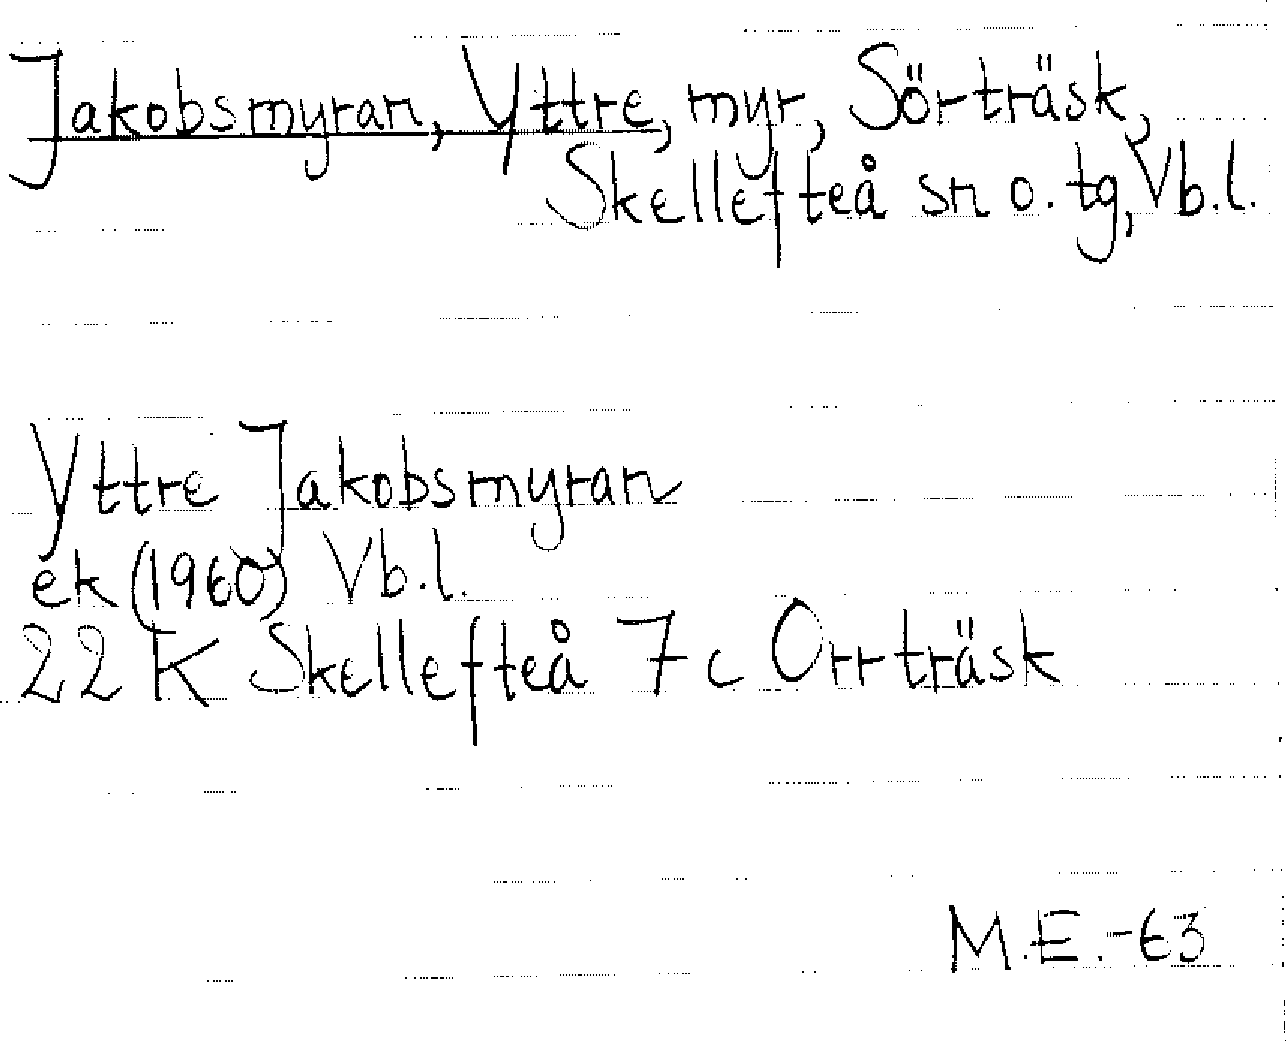 Jakobsmyran, Yttre, myr, Sörträsk,
Skellefteå sn o. tg, Vb.l.
Yttre Jakobsmyran
ek (1960) Vb.l.
22 K Skellefteå 7 c Orrträsk
M.E.-63